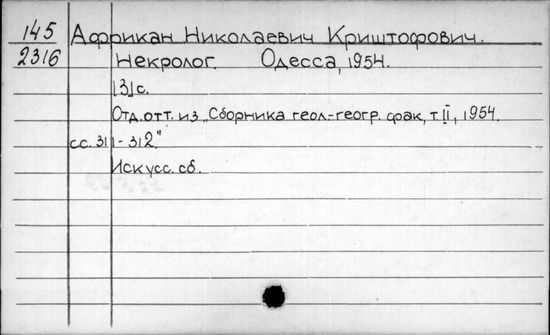 145 Африкан Николаевич Криштофович.
2316 Некролог. Одесса, 1954.
|3|с.
Отд.отт. из „Сборника геол.-геогр. фак, т. II, 1954.
сс. 311-312."
Искусс. сб.